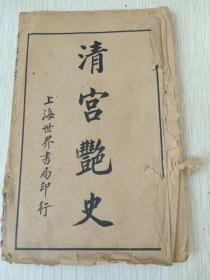 清宮艷史
上海世界書局印行